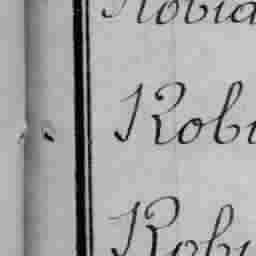 Robia
Robi
Robi